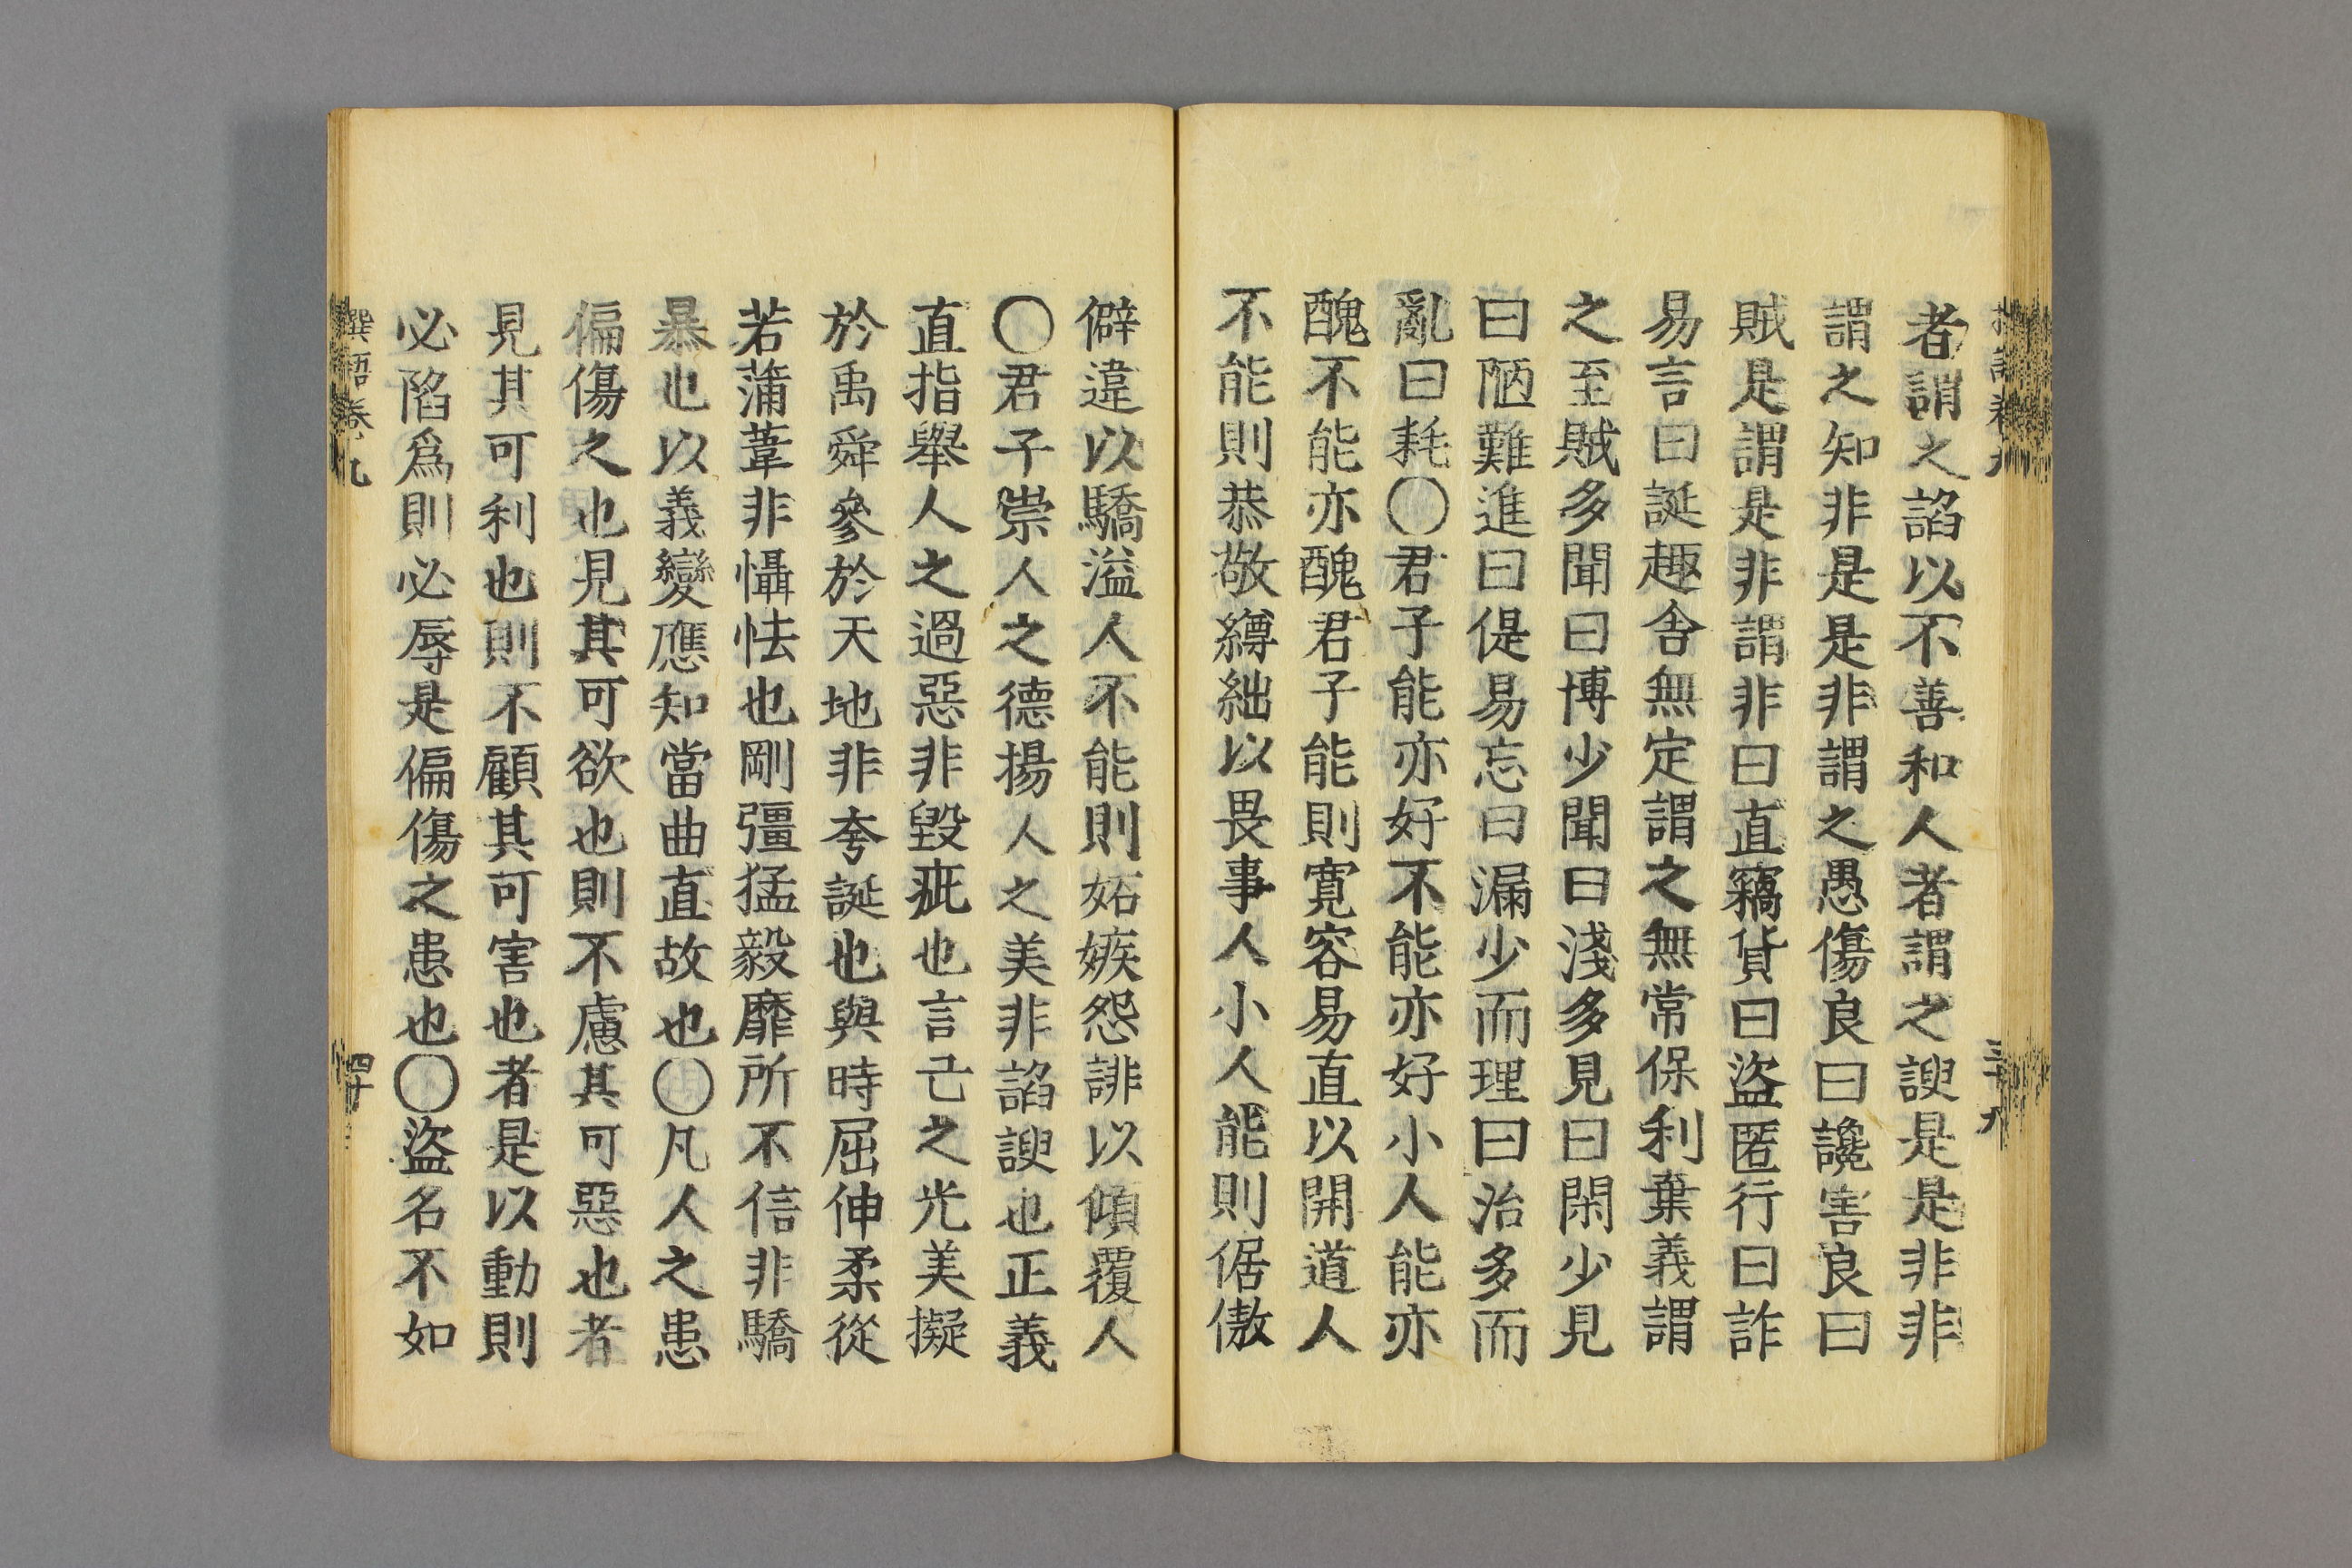 者謂之諂以不善和人者謂之諛是是非非
謂之知非是是非謂之愚傷良曰讒害良曰
賊是謂是非謂非曰直竊貨曰盜匿行曰詐
易言曰誕趣舍無定謂之無常保利棄義謂
之至賊多聞曰博少聞曰淺多見曰閑少見
曰陋難進曰偍易忘曰漏少而理曰治多而
亂曰耗〇君子能亦好不能亦好小人能亦
醜不能亦醜君子能則寬容易直以開道人
不能則恭敬繜絀以畏事人小人能則倨傲
僻違以驕溢人不能則妬嫉怨誹以傾覆人
〇君子崇人之德揚人之美非諂諛也正義
直指舉人之過惡非毀疵也言己之光美擬
於禹舜參於天地非夸誕也與時屈伸柔從
若蒲葦非懾怯也剛彊猛毅靡所不信非驕
暴也以義變應知當曲直故也〇凡人之患
偏傷之也見其可欲也則不慮其可惡也者
見其可利也則不顧其可害也者是以動則
必陷爲則必辱是偏傷之患也〇盜名不如
撰語卷九
四十